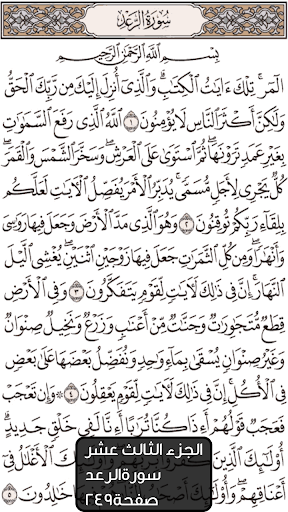 سُورَةُ الرَّعْدِ
بِسْمِ اللَّهِ الرَّحْمَٰنِ الرَّحِيمِ
الٓمٓر ۚ تِلْكَ ءَايَٰتُ الْكِتَٰبِ ۗ وَالَّذِىٓ أُنزِلَ إِلَيْكَ مِن رَّبِّكَ الْحَقُّ
وَلَٰكِنَّ أَكْثَرَ النَّاسِ لَا يُؤْمِنُونَ ١ اللَّهُ الَّذِى رَفَعَ السَّمَٰوَٰتِ
بِغَيْرِ عَمَدٍ تَرَوْنَهَا ۖ ثُمَّ اسْتَوَىٰ عَلَى الْعَرْشِ ۖ وَسَخَّرَ الشَّمْسَ وَالْقَمَرَ ۖ
كُلٌّ يَجْرِى لِأَجَلٍ مُّسَمًّى ۚ يُدَبِّرُ الْأَمْرَ يُفَصِّلُ الْءَايَٰتِ لَعَلَّكُم
بِلِقَآءِ رَبِّكُمْ تُوقِنُونَ ٢ وَهُوَ الَّذِى مَدَّ الْأَرْضَ وَجَعَلَ فِيهَا رَوَٰسِىَ
وَأَنْهَٰرًا ۖ وَمِن كُلِّ الثَّمَرَٰتِ جَعَلَ فِيهَا زَوْجَيْنِ اثْنَيْنِ ۖ يُغْشِى الَّيْلَ
النَّهَارَ ۚ إِنَّ فِى ذَٰلِكَ لَءَايَٰتٍ لِّقَوْمٍ يَتَفَكَّرُونَ ٣ وَفِى الْأَرْضِ
قِطَعٌ مُّتَجَٰوِرَٰتٌ وَجَنَّٰتٌ مِّنْ أَعْنَٰبٍ وَزَرْعٌ وَنَخِيلٌ صِنْوَانٌ
وَغَيْرُ صِنْوَانٍ يُسْقَىٰ بِمَآءٍ وَٰحِدٍ وَنُفَضِّلُ بَعْضَهَا عَلَىٰ بَعْضٍ
فِى الْأُكُلِ ۚ إِنَّ فِى ذَٰلِكَ لَءَايَٰتٍ لِّقَوْمٍ يَعْقِلُونَ ٤ وَإِن تَعْجَبْ
فَعَجَبٌ قَوْلُهُمْ أَءِذَا كُنَّا تُرَٰبًا أَءِنَّا لَفِى خَلْقٍ جَدِيدٍ ۗ
أُو۟لَٰٓئِكَ الَّذِينَ الْأَغْلَٰلُ فِىٓ
أَعْنَاقِهِمْ ۖ وَأُو۟لَٰٓئِكَ أَصْحَٰبُ خَٰلِدُونَ ٥
الجزء الثالث عشر
سورة الرعد
صفحة ٢٤٩